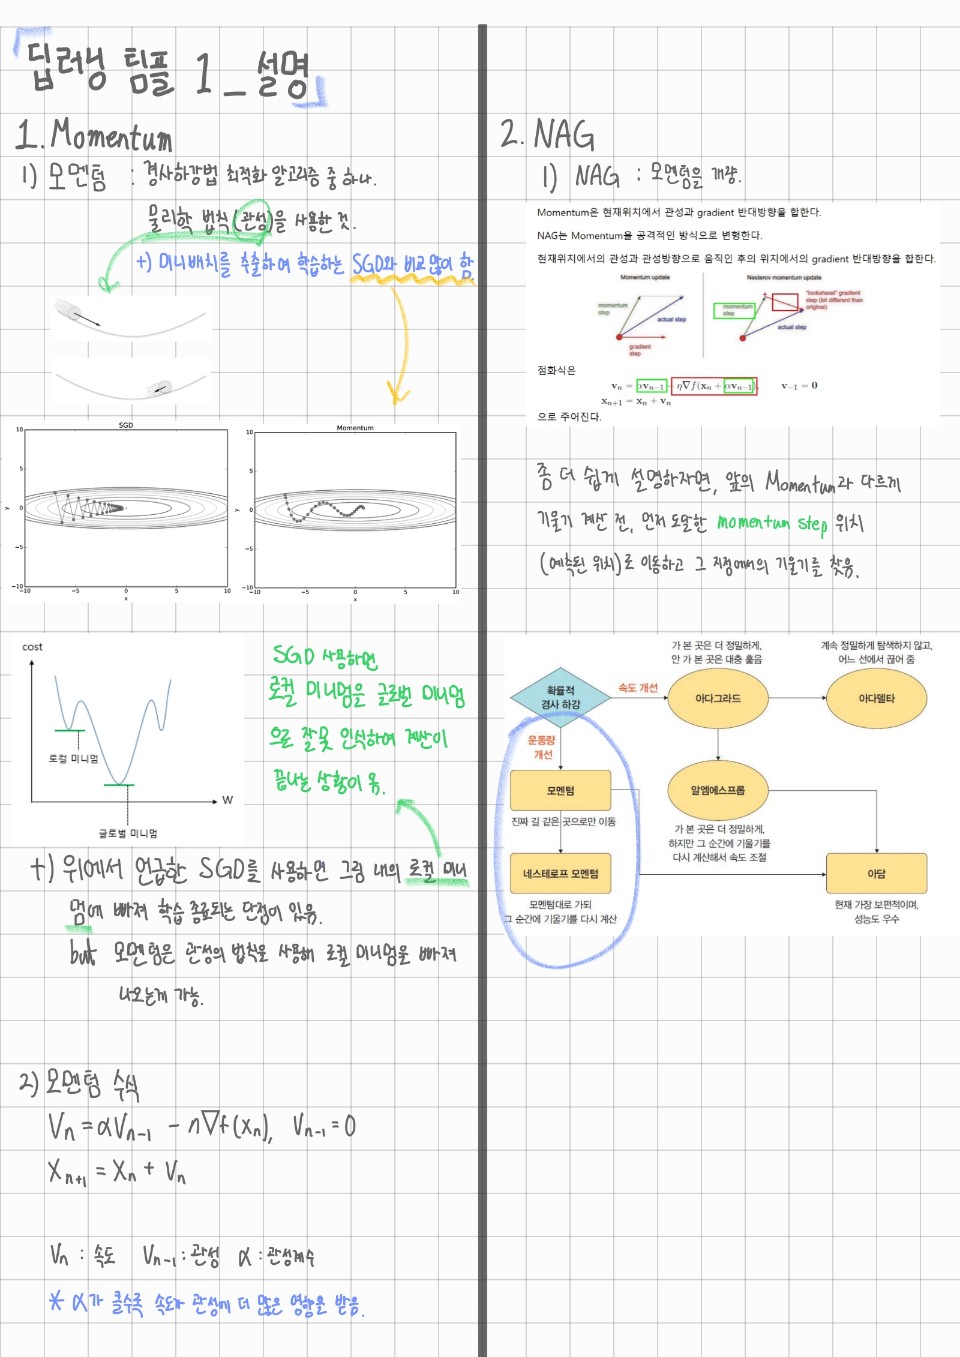 「딥러닝 팀플 1_설명」
1. Momentum
1) 모멘텀 : 경사하강법 최적화 알고리즘 중 하나.
물리학 법칙(관성)을 사용한 것.
+) 미니배치를 추출하여 학습하는 SGD와 비교 많이 함.
SGD
10
5
0
−5
−10
y
−10
−5
0
5
10
x
Momentum
10
5
0
−5
−10
y
−10
−5
0
5
10
x
cost
로컬 미니멈
글로벌 미니멈
W
SGD 사용하면
로컬 미니멈을 글로벌 미니멈
으로 잘못 인식하여 계산이
끝나는 상황이 옴.
+) 위에서 언급한 SGD를 사용하면 그림 내의 로컬 미니
멈에 빠져 학습 종료되는 단점이 있음.
but 모멘텀은 관성의 법칙을 사용해 로컬 미니멈을 빠져
나오는게 가능.
2) 모멘텀 수식
Vn = αVn-1 - η∇f(xn), Vn-1 = 0
Xn+1 = Xn + Vn
Vn : 속도 Vn-1 : 관성 α : 관성계수
* α가 클수록 속도가 관성에 더 많은 영향을 받음.
2. NAG
1) NAG : 모멘텀을 개량.
Momentum은 현재위치에서 관성과 gradient 반대방향을 합한다.
NAG는 Momentum을 공격적인 방식으로 변형한다.
현재위치에서의 관성과 관성방향으로 움직인 후의 위치에서의 gradient 반대방향을 합한다.
Momentum update
momentum
step
actual step
gradient
step
Nesterov momentum update
momentum
step
"lookahead" gradient
step (bit different than
original)
actual step
점화식은
vn = αvn−1 − η∇f(xn + αvn−1), v−1 = 0
xn+1 = xn + vn
으로 주어진다.
좀 더 쉽게 설명하자면, 앞의 Momentum과 다르게
기울기 계산 전, 먼저 도달한 momentum step 위치
(예측된 위치)로 이동하고 그 지점에서의 기울기를 찾음.
확률적
경사 하강
속도 개선
가 본 곳은 더 정밀하게,
안 가 본 곳은 대충 훑음
아다그라드
계속 정밀하게 탐색하지 않고,
어느 선에서 끊어 줌
아다델타
운동량
개선
모멘텀
진짜 길 같은 곳으로만 이동
알엠에스프롭
가 본 곳은 더 정밀하게,
하지만 그 순간에 기울기를
다시 계산해서 속도 조절
네스테로프 모멘텀
모멘텀대로 가되
그 순간에 기울기를 다시 계산
아담
현재 가장 보편적이며,
성능도 우수